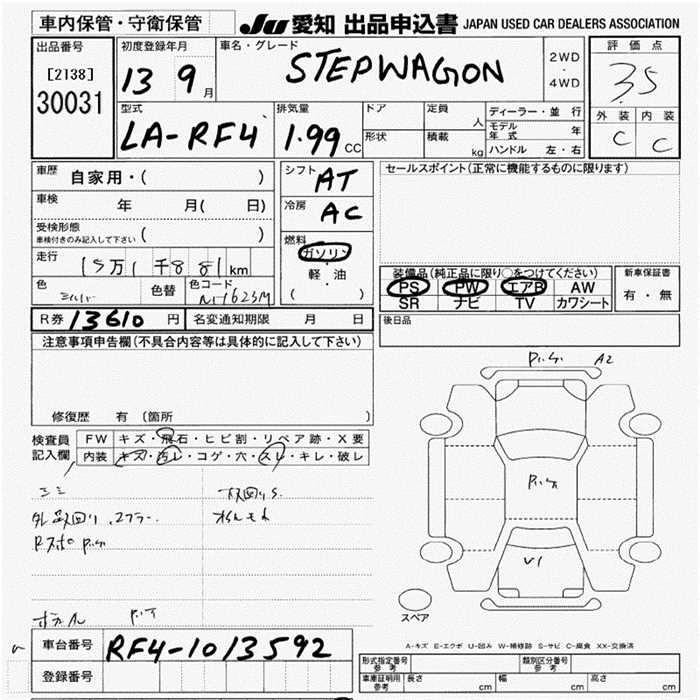 車内保管・守衛保管 JU 愛知 出品申込書 JAPAN USED CAR DEALERS ASSOCIATION
出品番号 初度登録年月 車名・グレード 評価点
[2138] 13 9月 STEPWAGON 2WD・4WD 3.5
30031 外装 内装
型式 排気量 ドア 定員 人 ディーラー・並行 C C
LA-RF4 1.99 CC モデル年式 年
形状 積載 kg ハンドル 左・右
車歴 自家用・( ) シフト AT セールスポイント(正常に機能するものに限ります)
車検 年 月( 日) 冷房 AC
受検形態 ( )
車検付きのみ記入して下さい
燃料 ガソリン・軽油 ( )
走行 15万1千881km 装備品(純正品に限り○をつけてください) 新車保証書
色 色替 色コード PS PW エアB AW 有・無
SR ナビ TV カワシート
R券 13610 円 名変通知期限 月 日 後日品
注意事項申告欄(不具合内容等は具体的に記入して下さい)
A2
修復歴 有 (箇所
検査員記入欄 FW キズ・飛石・ヒビ割・リペア跡・X要
内装 キズ・汚レ・コゲ・穴・スレ・キレ・破レ
V1
スペア
A-キズ E-エクボ U-凹み W-補修跡 S-サビ C-腐食 XX-交換済
車台番号 RF4-1013592
登録番号
形式指定番号 参考 類別区分番号 参考
車庫証明用 参考 長さ cm 幅 cm 高さ cm